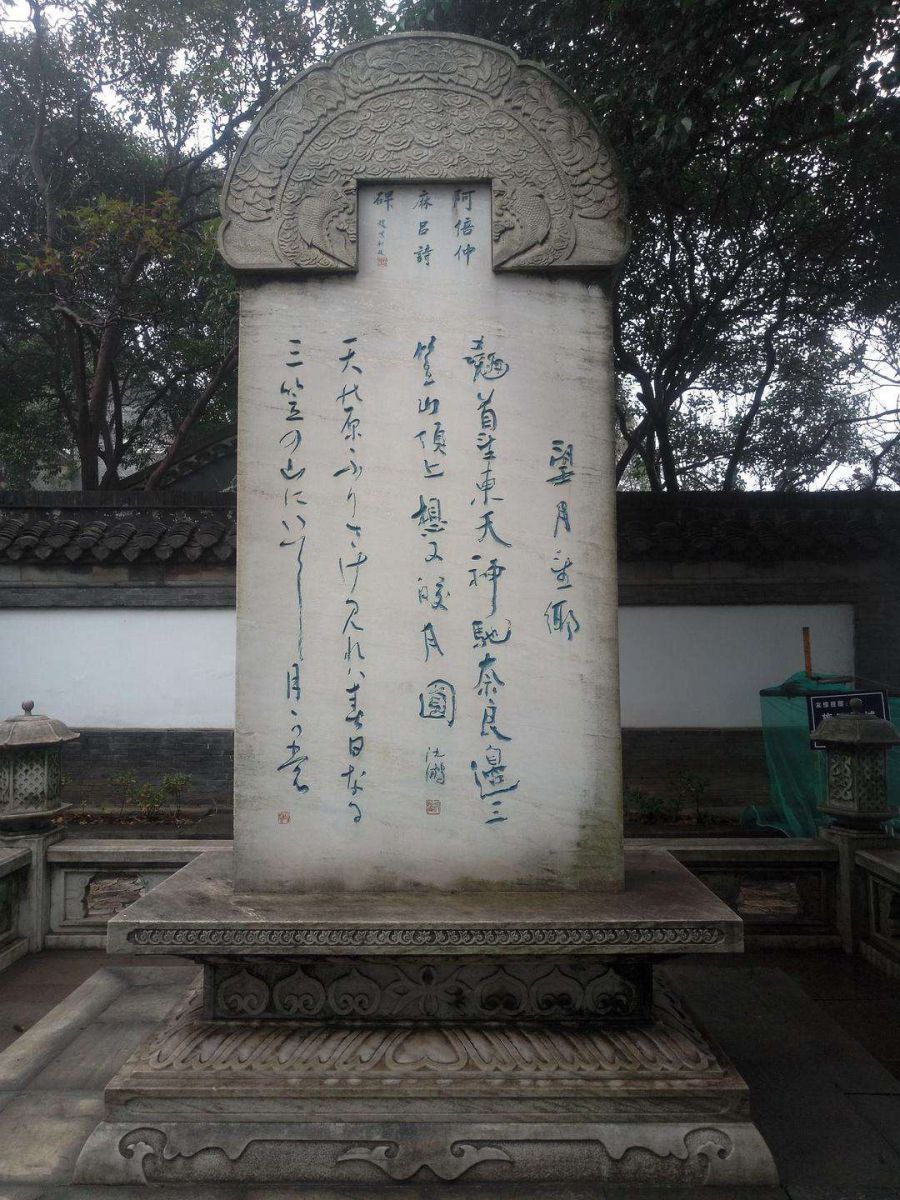 阿倍仲
麻呂詩
碑
趙樸初敬題
望月望鄉
翹首望東天神馳奈良邊三
笠山頂上想又皎月圓
沈鵬
天の原ふりさけ見れハ春日なる
三笠の山にいてし月可裳